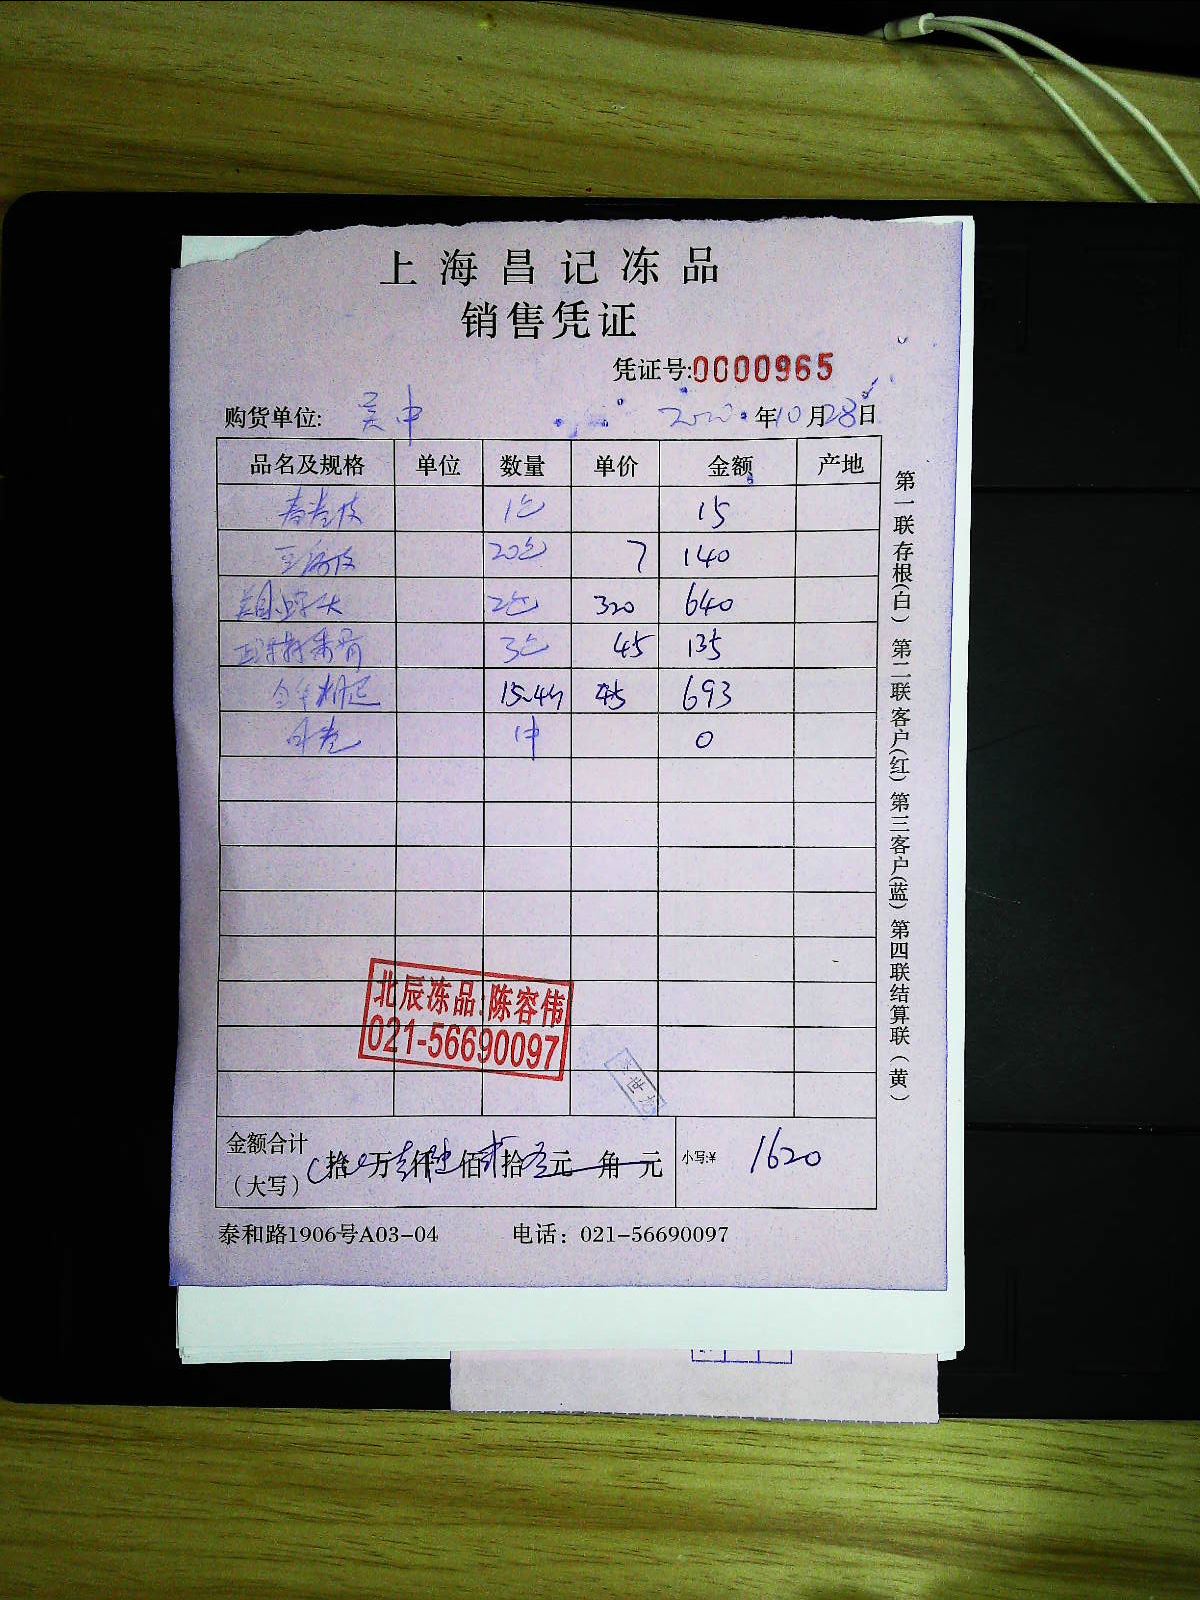 上海昌记冻品
销售凭证
凭证号:0000965
购货单位: 吴中 2020年10月28日
品名及规格 单位 数量 单价 金额 产地
春卷皮 1包 15
20包 7 140
2包 320 640
3包 45 135
15.4斤 45 693
1件 0
北辰冻品:陈容伟
021-56690097
金额合计
(大写) 拾 万 仟 佰 拾 元 角 元 小写:¥ 1620
泰和路1906号A03-04 电话：021-56690097
第一联存根(白) 第二联客户(红) 第三客户(蓝) 第四联结算联(黄)